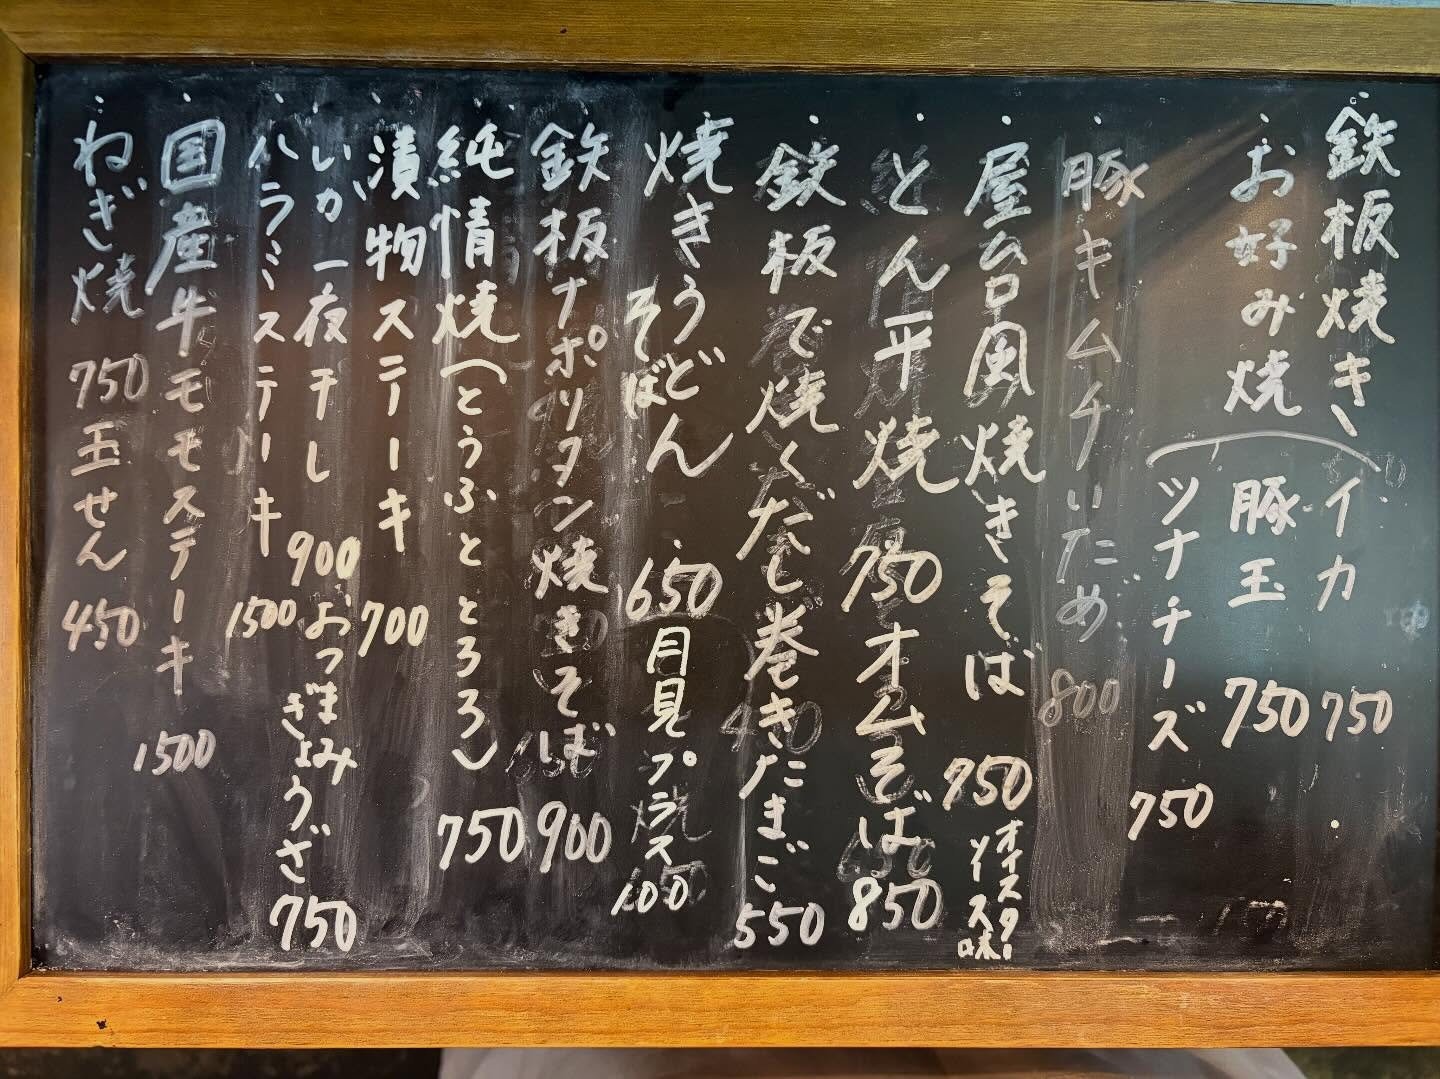 鉄板焼き
お好み焼
イカ 750
豚玉 750
ツナチーズ 750
豚キムチいため 800
屋ムロ風焼きそば 750
オイスターソース味
とん平焼 750
オムそば 850
鉄板で焼くだし巻きたまご 550
焼きうどん
そば 650
月見プラス100
鉄板ナポリタン焼きそば 900
純情焼(とうふととろろ) 750
漬物ステーキ 700
いか一夜干し 900
おつまみぎょうざ 750
ハラミステーキ 1500
国産牛モモステーキ 1500
ねぎ焼 750
玉せん 450